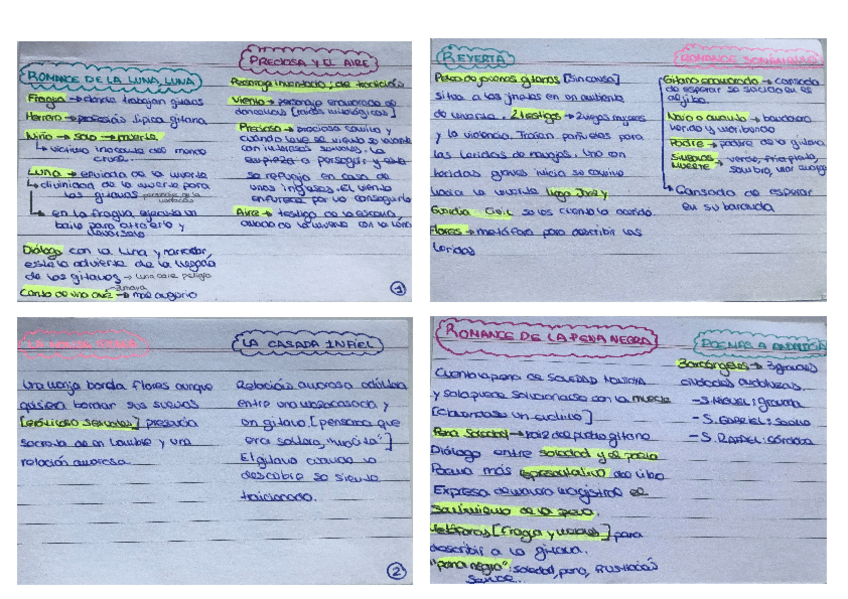 ROMANCE DE LA LUNA, LUNA
Fragua → donde trabajan gitanos
Herrero → profesión típica gitana
Niño → solo → muerte
↳ víctima inocente del mundo
cruel.
Luna → enviada de la muerte
↳ divinidad de la muerte para
los gitanos
↳ en la fragua, ejecuta un
baile para atraerlo y
llevárselo
Diálogo con la luna y narrador,
este la advierte de la llegada
de los gitanos → luna corre peligro
Canto de una ave → mal augurio
zumaya
PRECIOSA Y EL AIRE
Personaje inventado, de tradición
Viento → personaje enamorado de
doncellas [raíces mitológicas]
Preciosa → preciosa camina y
cuando lo ve el viento se levanta
con intereses sexuales. La
empieza a perseguir y esta
se refugia en casa de
unos ingleses. El viento
enfurece por no conseguirlo
Aire → testigo de la escena,
1
REYERTA
Pelea de jóvenes gitanos [sin causa]
sitúa a los jinetes en un ambiente
de muerte. 2 testigos → 2 viejas mujeres
y la violencia. Traían pañuelos para
las heridas de navajas. Uno con
heridas graves inicia su camino
hacia la muerte. Luego Juez y
Guardia Civil se les cuenta lo ocurrido.
Flores → metáfora para describir las
heridas
ROMANCE SONÁMBULO
Gitana enamorada → cansada
de esperar se suicida en el
aljibe.
Novio o amante → bandolero
herido y moribundo
Padre → padre de la gitana
SÍMBOLOS MUERTE → verde, fría plata,
sombra, mar amargo
↳ Cansada de esperar
en su baranda
LA MONJA GITANA
Una monja borda flores aunque
quisiera bordar sus sueños
[eróticos sexuales] presencia
secreta de un hombre y una
relación amorosa.
LA CASADA INFIEL
Relación amorosa adúltera
entre una moza casada y
un gitano [pensaba que
era soltera, "mocita"]
El gitano cuando lo
descubre se siente
traicionado.
2
ROMANCE DE LA PENA NEGRA
Cuenta la pena de SOLEDAD MONTOYA
y solo puede solucionarse con la muerte
[clavándose un cuchillo]
Pena Soledad → raíz del pueblo gitano
Diálogo entre soledad y el poeta
Poema más representativo del libro
Expresa de manera magistral el
sentimiento de la pena.
Metáforas [fragua y metales] para
describir a la gitana.
"pena negra": soledad, pena, frustración
sexual.
POEMAS A ANDALUCÍA
3 arcángeles → 3 grandes
ciudades andaluzas.
- S. MIGUEL: Granada
- S. GABRIEL: Sevilla
- S. RAFAEL: Córdoba